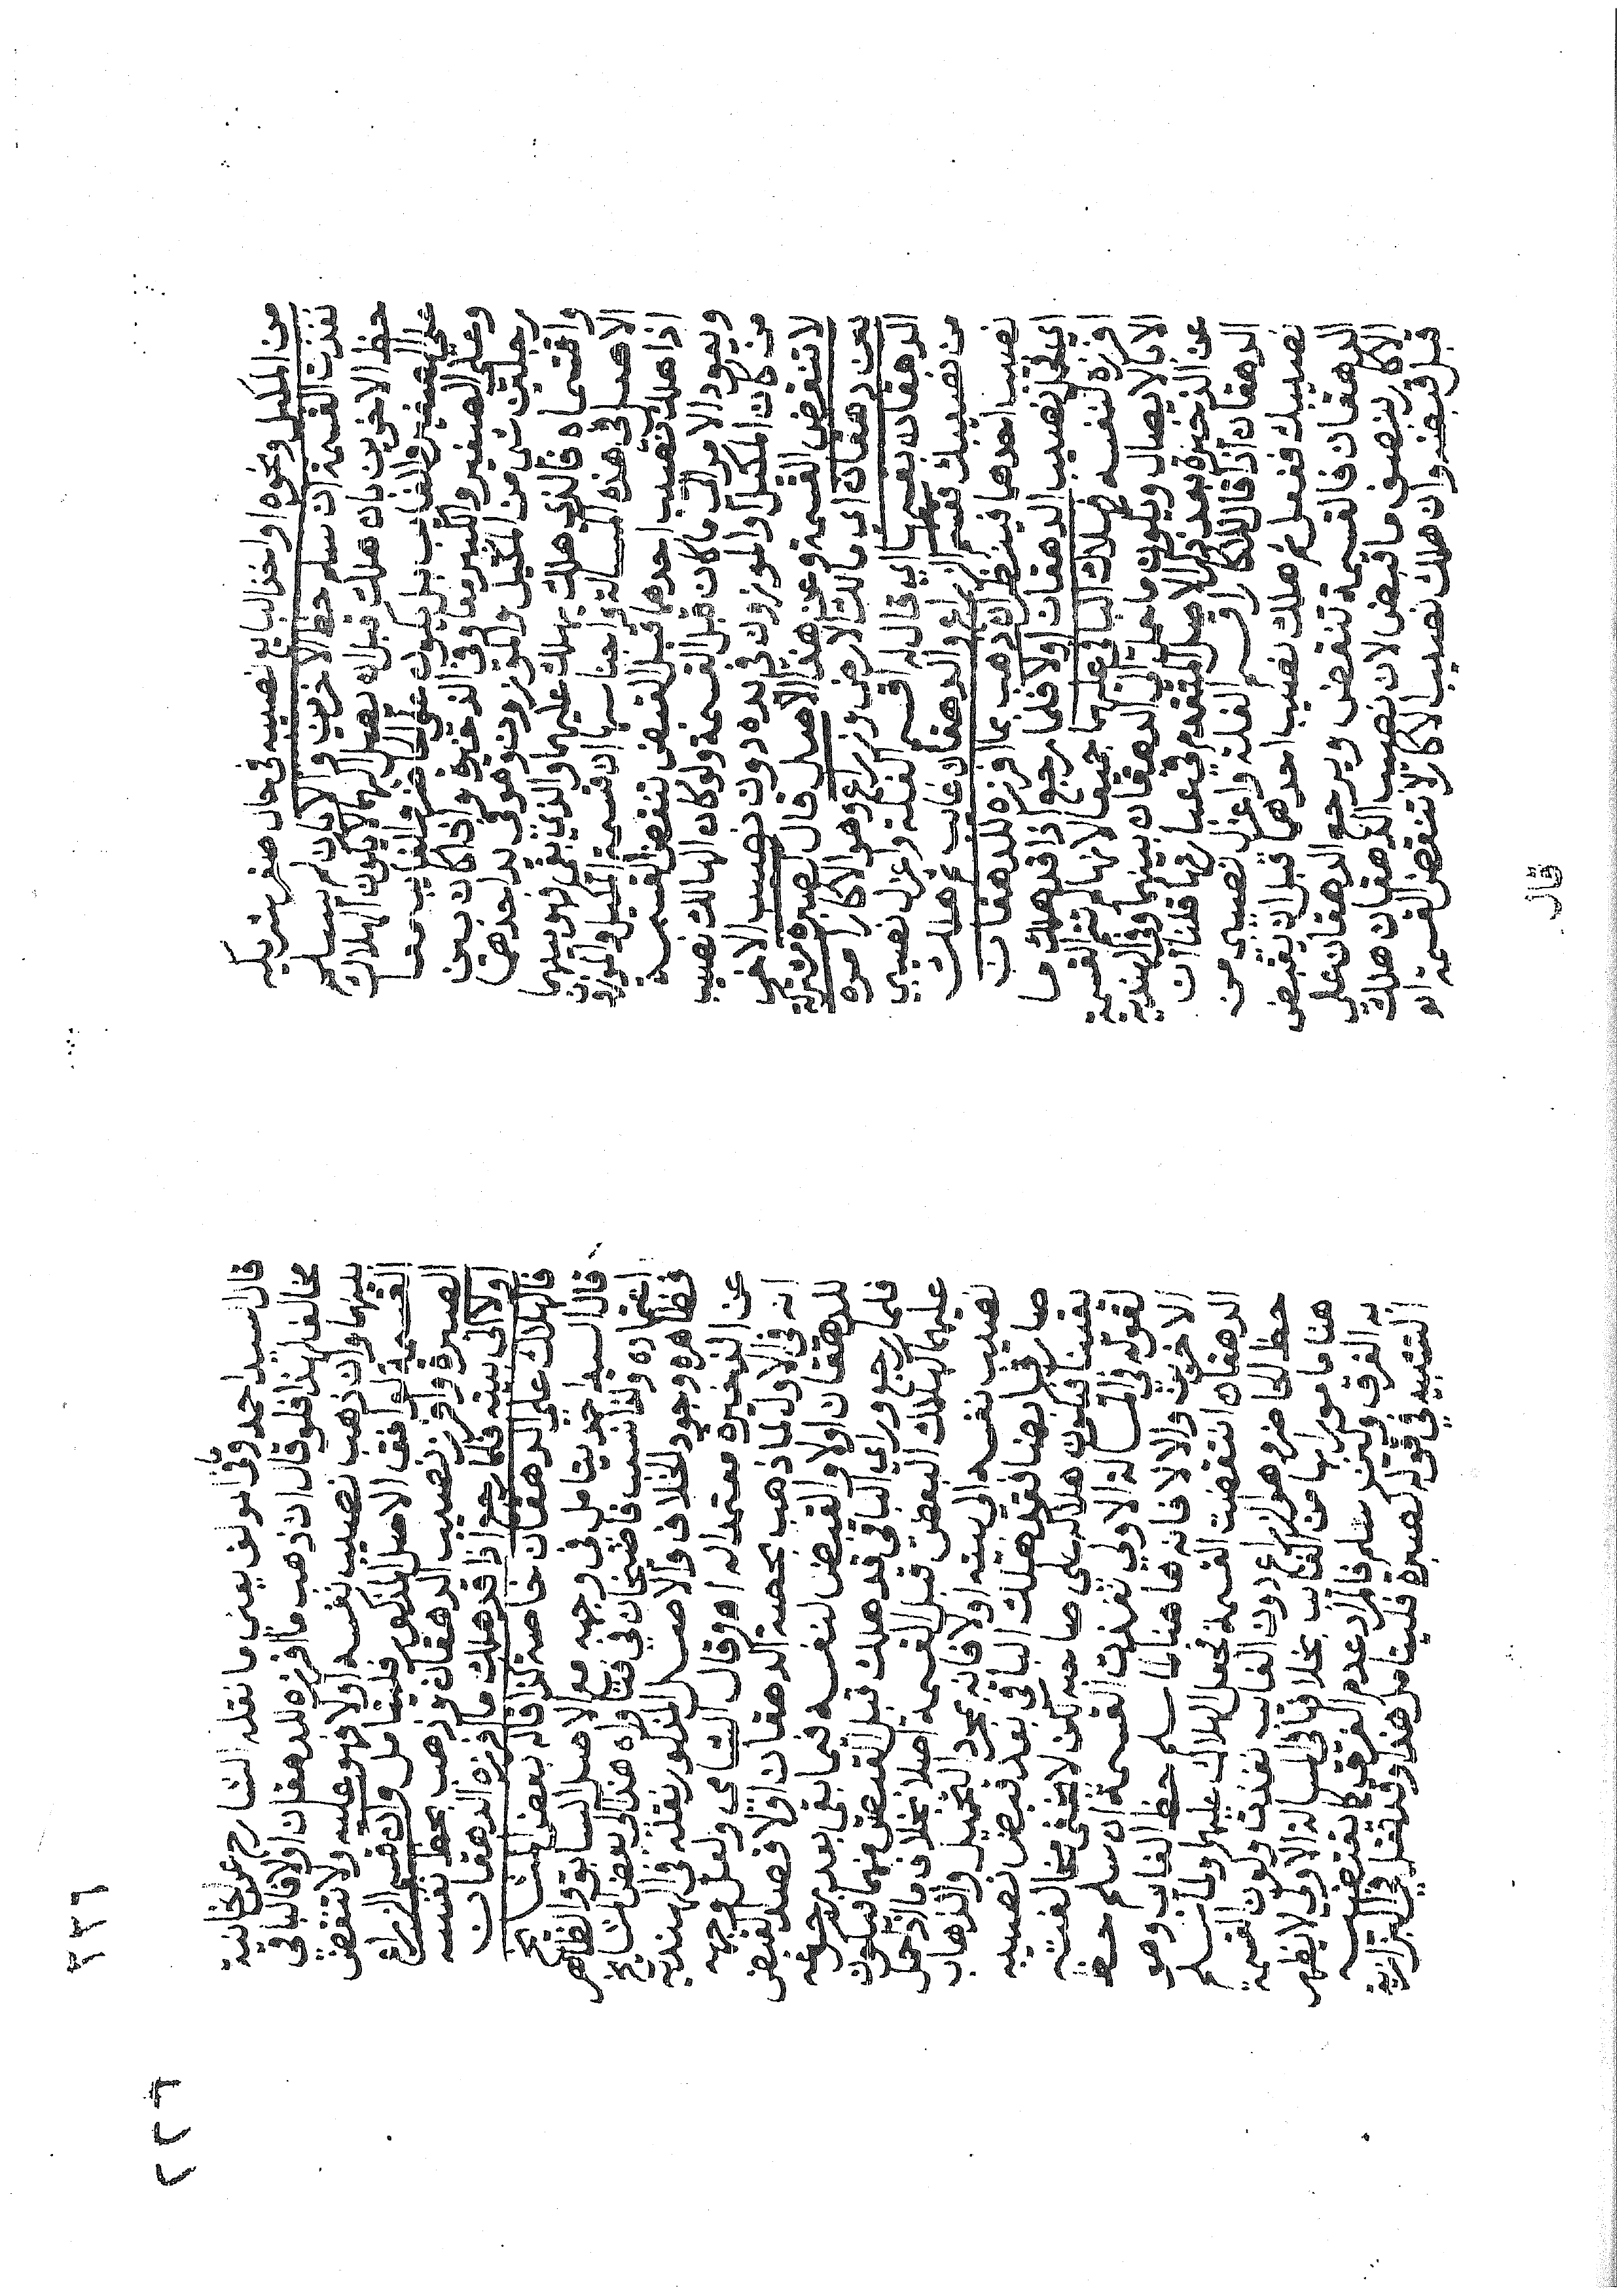 من المكيل ونحوه او اخذ البايع نصيبه في حال صغر شريكه
نفذت القسمة ان سلم حظ الاخرين والا بان لم يسلم
حظ الاخرين بان هلك قبل ان يصل اليهما لا يكون الهلاك
على الصغير والغايب بل يكون على الحاضر والغايب معا
وعلى الصغير والكبير معا وفي الذخيرة واذا كان بين
رجلين شي من المكيل والموزون وهو في يد احدهما
واقتسماه فالذي هلك يهلك عليهما والذي بقي فهو بينهما
الاصل في هذه المسالة واجناسها ان قسمة المكيل والموزون
اذا هلك نصيب احدهما قبل القبض تنتقض القسمة
ويعود الامر الى ما كان قبل القسمة ولو كان الهالك نصيب
من كان المكيل والموزون في يده دون نصيب الاخر
لا تنتقض القسمة وعن هذا الاصل قال صبرة مشتركة
بين دهقان اي مالك الارض وزراع وهو الاكار امره
الدهقان بقسمها اي قال له اقسم الغلة واعزل نصيبي
من نصيبك فقسم الزراع والدهقان غايب ثم هلك
نصيب احدهما فينظر ان ذهب بما افرزه للدهقان
اي حمل نصيب الدهقان اولا فلما رجع اذا قد هلك ما
افرزه لنفسه فهلاك الباقي عليهما جميعا لانها لم تتم القسمة
الا بالايصال ويكون ما حمل الى الدهقان بينهما وفي الهندية
عن الذخيرة بعد ذكر الاصل المتقدم في عبارتها قلنا ان
الدهقان اذا قال للاكار اقسم الغلة واعزل نصيبي من
نصيبك ففعل ثم هلك نصيب احدهما قبل ان يقبض
الدهقان فالقسمة تنتقض ويرجع الدهقان على
الاكار بنصف ما قبض لان نصيب الدهقان هلك
قبل قبضه وان هلك نصيب الاكار لا تنتقض القسمة اه
قال
٢٢٦
قال السيد احمد وفي ابو يعني ما نقله الشارح عن الخانية
مخالف لهذا فلو قال ان ذهب ما افرزه للدهقان اولا فالباقي
بينهما وان ذهب نصيب نفسه اولا فهو عليه ولا تنتقض
القسمة لوافق الاصل المذكور فليتامل وان قسم الزراع
الصبرة وافرز نصيب الدهقان وذهب بحظ نفسه
اولا الى بيته فلما رجع اذا قد هلك ما افرزه للدهقان
فالهلاك على الدهقان خاصة كذا قاله بعض المشايخ
قال السيد احمد يتامل في وجهه مع الاصل السابق والظاهر
اعتماده ولذا نسب قاضيخان في فتاواه هذا الى بعض المشايخ
فظاهره وجود الخلاف والاصل المذكور نقله في الهندية
عن الذخيرة معتمدا له اه وقال الشامي ولعل وجهه
انه في الاول لما ذهب بحصة الدهقان اولا قصد القبض
للدهقان اولا والقبض لنفسه فيما بقي بعد رجوعه
فلما رجع وراي الباقي قد هلك قبل القبض منهما فيكون
عليهما كهلاك البعض قبل القسمة اصلا بخلاف ما اذا حمل
نصيب نفسه الى بيته اولا فانه بمجرد التحميل والذهاب
صار قابضا فقد هلك الباقي بعد قبض نصيبه
يقينا فيكون هلاكه على صاحبه لكن لا يخفى مخالفته
لقوله في المسالة الاولى نفذت القسمة ان سلم حظ
الاخرين والا لا فانه ها هنا لما سلم حظ الغايب وهو
الدهقان انتقضت القسمة فجعل الهلاك عليهما ولما سلم
حظ الحاضر وهو الزراع دون الغايب نفذت وكون القسمة
هنا مامورا بها من الغايب بخلافها في المسالة الاولى لا يظهر
به الفرق ولئن سلم فالمراد عدم الفرق كما يقتضيه
التشبيه في قوله كصبرة فليتامل هذا وقد نقل في البزازية
٢٢٦